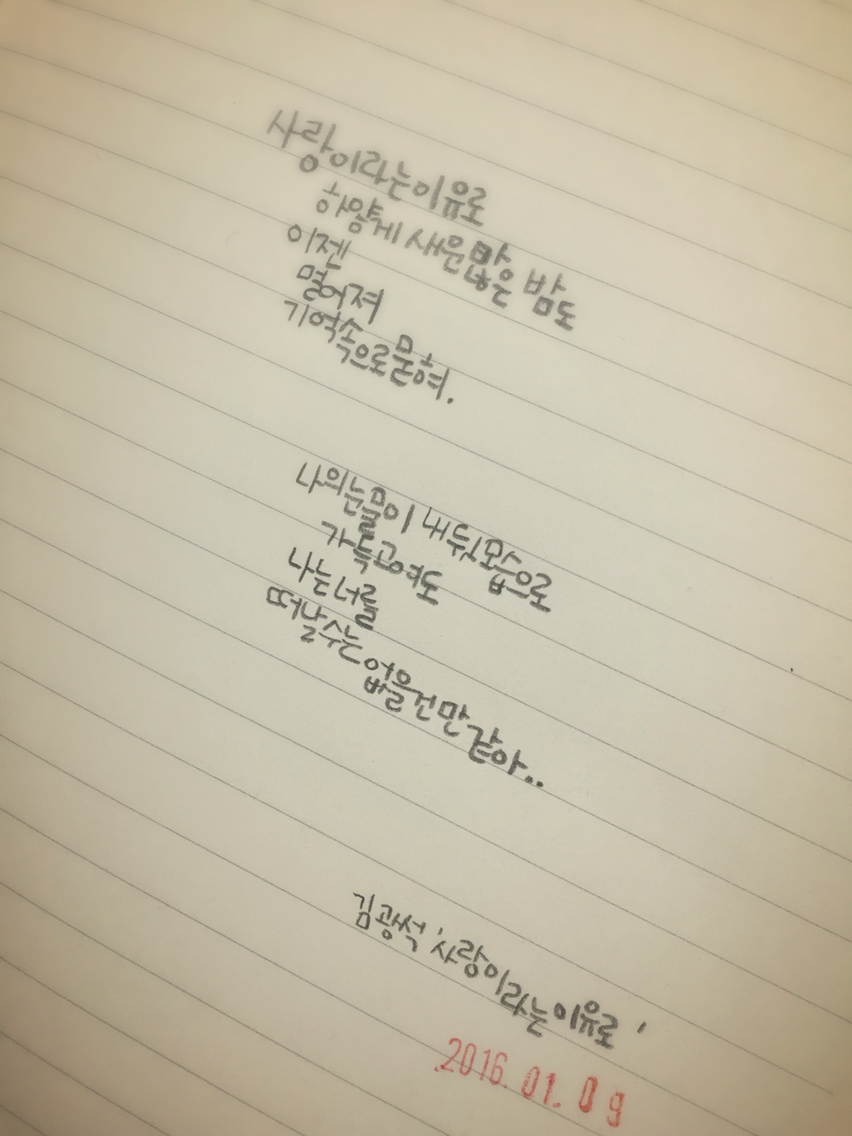 사랑이라는이유로
하얗게 새운많은 밤도
이젠
멀어져
기억속으로묻혀.
나의눈물이 내뒷모습으로
가득고여도
나는너를
떠날수는없을건만같아..
김광석 '사랑이라는이유로'
2016. 01. 09